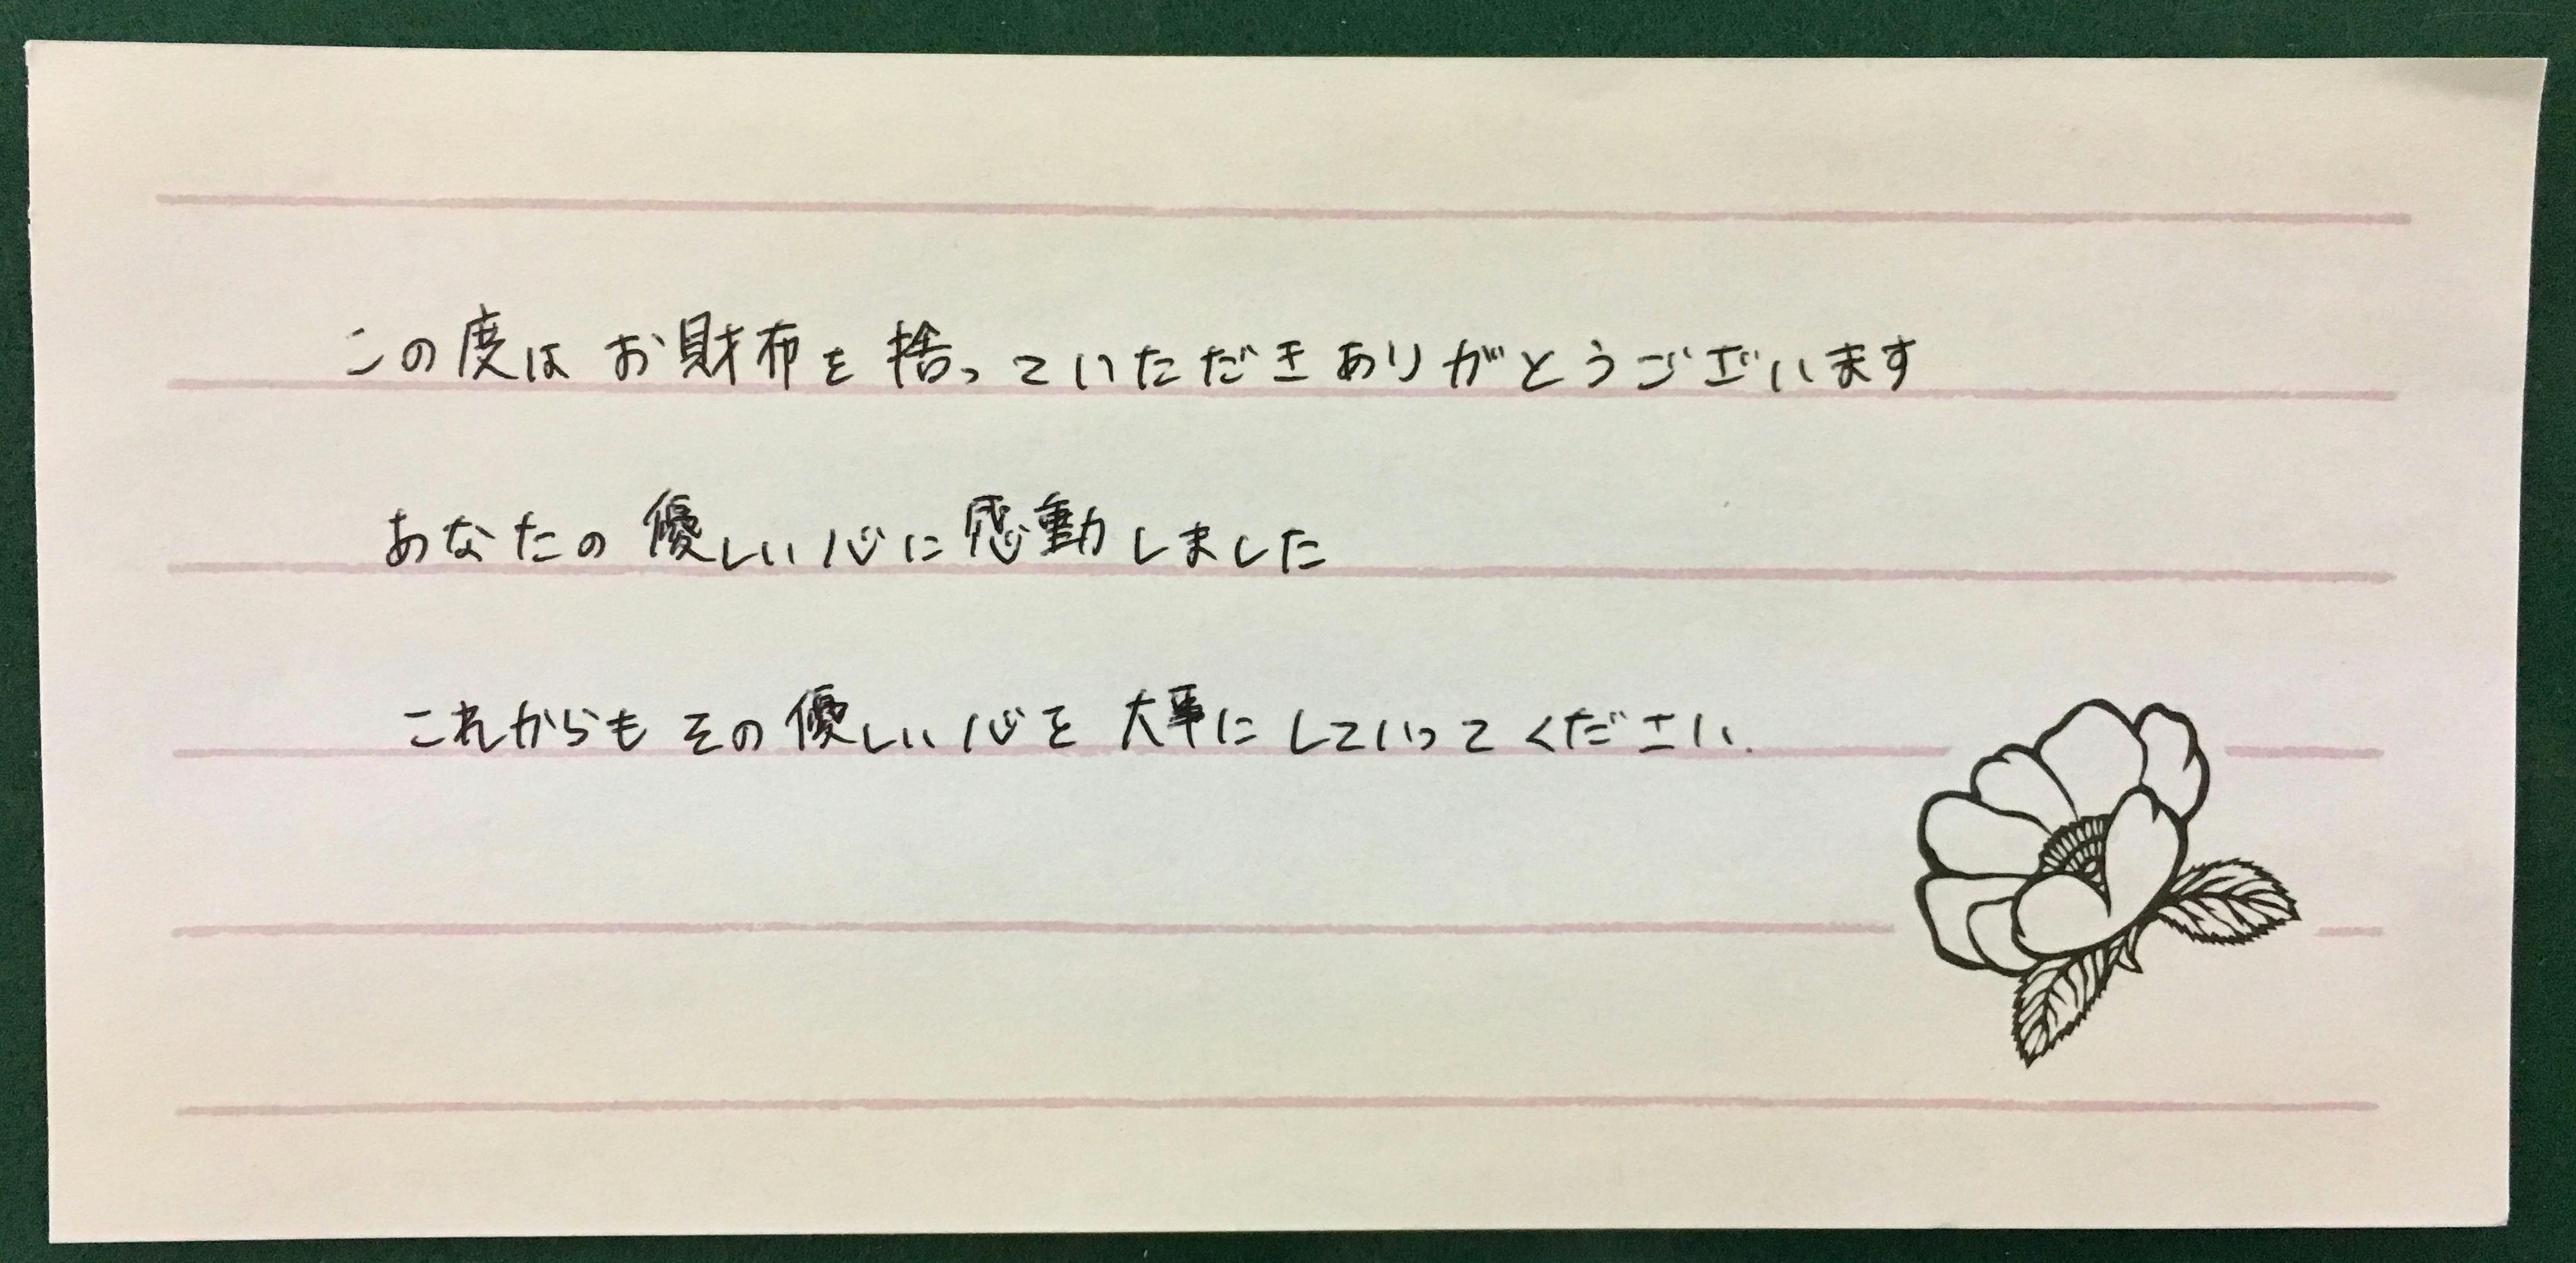 この度はお財布を捨っていただきありがとうございます
あなたの優しい心に感動しました
これからもその優しい心を大事にしていってください.